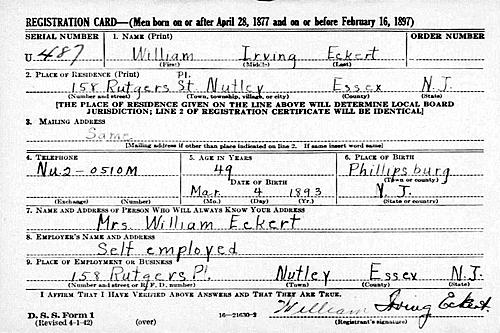 REGISTRATION CARD—(Men born on or after April 28, 1877 and on or before February 16, 1897)
SERIAL NUMBER 1. NAME (Print) ORDER NUMBER
U 487 William Irving Eckert
(First) (Middle) (Last)
2. PLACE OF RESIDENCE (Print) Pl.
158 Rutgers St. Nutley Essex N.J.
(Number and street) (Town, township, village, or city) (County) (State)
[THE PLACE OF RESIDENCE GIVEN ON THE LINE ABOVE WILL DETERMINE LOCAL BOARD
JURISDICTION; LINE 2 OF REGISTRATION CERTIFICATE WILL BE IDENTICAL]
3. MAILING ADDRESS
Same
[Mailing address if other than place indicated on line 2. If same insert word same]
4. TELEPHONE 5. AGE IN YEARS 6. PLACE OF BIRTH
Nu. 2-0510M 49 Phillipsburg
DATE OF BIRTH (Town or county)
Mar. 4 1893 N.J.
(Exchange) (Number) (Mo.) (Day) (Yr.) (State or country)
7. NAME AND ADDRESS OF PERSON WHO WILL ALWAYS KNOW YOUR ADDRESS
Mrs. William Eckert
8. EMPLOYER'S NAME AND ADDRESS
Self employed
9. PLACE OF EMPLOYMENT OR BUSINESS
158 Rutgers Pl. Nutley Essex N.J.
(Number and street or R. F. D. number) (Town) (County) (State)
I AFFIRM THAT I HAVE VERIFIED ABOVE ANSWERS AND THAT THEY ARE TRUE.
D. S. S. Form 1 William Irving Eckert
(Revised 4-1-42) (over) 16—21630-2 (Registrant's signature)